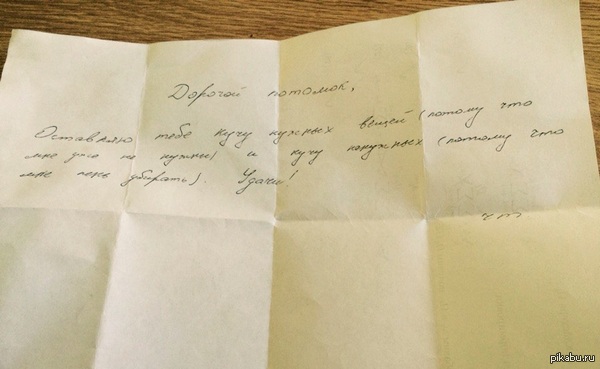 Дорогой потомок,
Оставляю тебе кучу нужных вещей (потому что
мне уже не нужны) и кучу ненужных (потому что
мне лень убирать). Удачи!
pikabu.ru